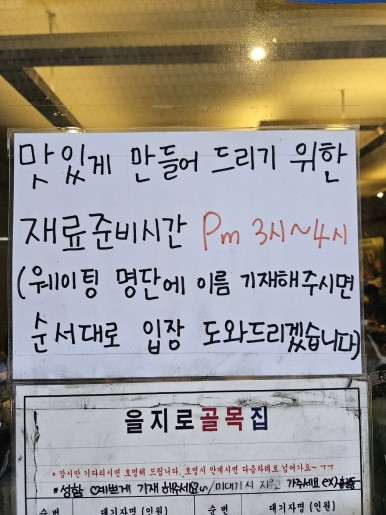 맛있게 만들어 드리기 위한
재료준비시간 Pm 3시~4시
(웨이팅 명단에 이름 기재해주시면
순서대로 입장 도와드리겠습니다)
을지로골목집
* 잠시만 기다리시면 호명해 드립니다. 호명시 안계시면 다음차례로 넘어가요~ ㅜㅜ
* 성함 예쁘게 기재 해주세요 / 미대기시 지우고 가주세요 ex)
순번 대기자명 (인원) 순번 대기자명 (인원)